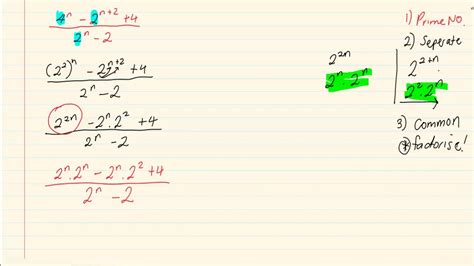 4ⁿ − 2ⁿ⁺² + 4
2ⁿ − 2
(2²)ⁿ − 2ⁿ⁺² + 4
2ⁿ − 2
2²ⁿ − 2ⁿ . 2² + 4
2ⁿ − 2
2ⁿ . 2ⁿ − 2ⁿ . 2² + 4
2ⁿ − 2
2²ⁿ
2ⁿ . 2ⁿ
1) Prime NO.
2) Seperate
2²⁺ⁿ
2² . 2ⁿ
3) Common
* factorise!